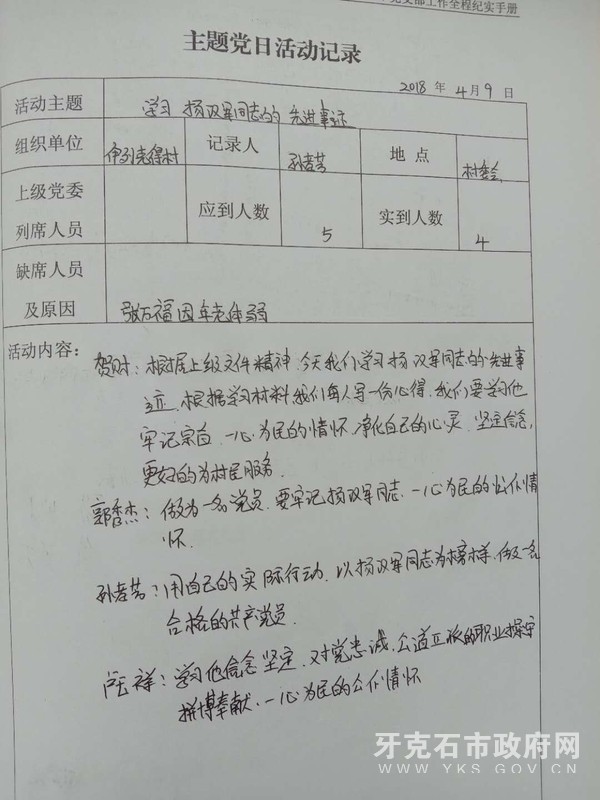 党支部工作全程纪实手册
主题党日活动记录
2018 年 4 月 9 日
活动主题 学习杨汉军同志的先进事迹
组织单位 伊列克得村 记录人 孙孝芳 地点 村委会
上级党委列席人员 应到人数 5 实到人数 4
缺席人员
及原因 张万福因年老体弱
活动内容：
贺财：根据上级文件精神.今天我们学习杨汉军同志的先进事
迹.根据学习材料我们每人写一份心得.我们要学习他
牢记宗旨.一心为民的情怀.净化自己的心灵.坚定信念,
更好的为村民服务.
郭秀杰：做为一名党员.要牢记杨汉军同志.一心为民的公仆情
怀.
孙孝芳：用自己的实际行动.以杨汉军同志为榜样.做一名
合格的共产党员.
祥：学习他信念坚定.对党忠诚.公道正派的职业操守
拼博奉献.一心为民的公仆情怀
牙克石市政府网
WWW.YKS.GOV.CN